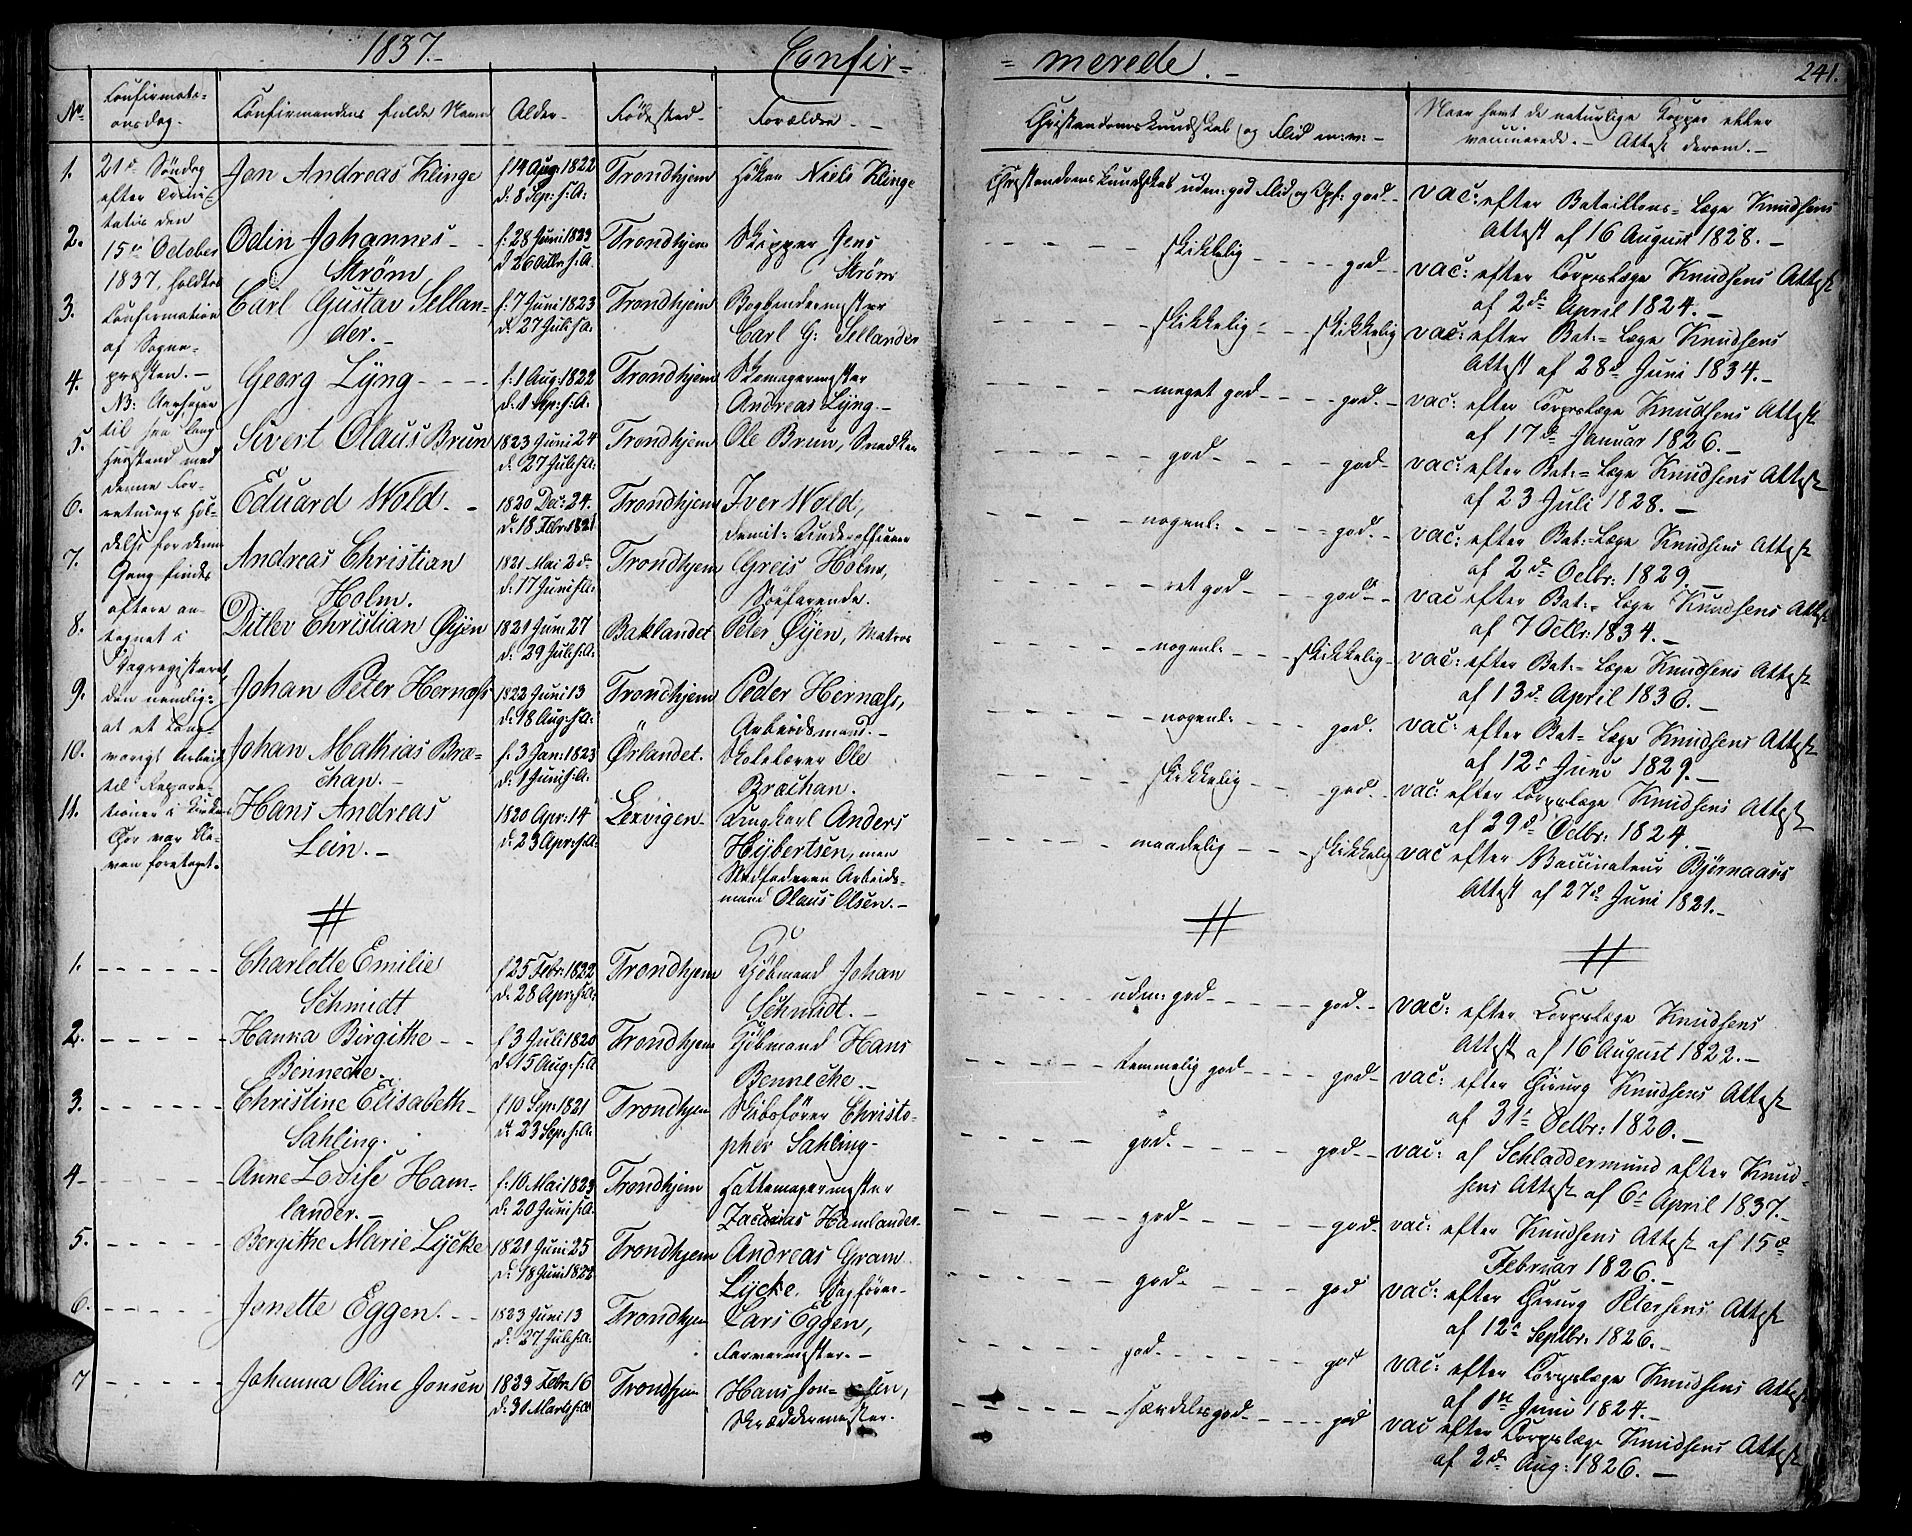 1837.- Confir-
= merede. -
241.
No
Confirmati-
onsdag.
Confirmandens fulde Navn
Alder
Fødested
Forældre
Christendomskundskab og Flid m: v: -
Naar havt de naturlige Kopper eller
vaccinerede. - Attest derom. -
21de Søndag
efter Trini-
tatis den
15de October
1837, holdtes
Confirmation
af Sogne-
præsten. -
NB: Aarsagen
til
med
denne For-
retnings Hol-
delse for denne
Gang findes
oftere an-
tegnet i
Dagregisteret
den nemlig:
at et lang-
varigt Arbeid
til Repara-
tioner i Kirkens
Chor var ble-
ven foretaget.
1. Jon Andreas Klinge
f 14 Aug: 1822
d: 8 Sep: s: A:
Trondhjem
Høker Niels Klinge
Christendomskundskab udm: god Flid og Opf: god
vac: efter Bataillons-Læge Knudsens
Attest af 16 August 1828. -
2. Odin Johannes
Strøm
f: 28 Juni 1823
d 26 Octbr: s: A.
Trondhjem
Skipper Jens
Strøm
skikkelig - god
vac: efter Corpslæge Knudsens Attest
af 2de April 1824. -
3. Carl Gustav Sellan-
der. -
f: 7 Juni 1823
d: 27 Juli s: A:
Trondhjem
Bogbindermester
Carl G: Sellander
skikkelig - skikkelig
vac: efter Bat:=Læge Knudsens
Attest af 28de Juni 1834. -
4. Georg Lÿng
f: 1 Aug: 1822
d: 1 Sp: s: A:
Trondhjem
Skomagermester
Andreas Lÿng. -
meget god - god.
vac: efter Corpslæge Knudsens Attest
af 17de Januar 1826. -
5. Sivert Olaus Brun
1823 Juni 24
d: 27 Juli s: A:
Trondhjem
Ole Brun, Snedker
god - god
vac: efter Bat:=Læge Knudsens Attest
af 23 Juli 1828. -
6. Eduard Wold. -
1820 Dec: 24.
d: 18 Febr: 1821
Trondhjem
Iver Wold,
demit: Underofficeer
nogenl: - god.
vac: efter Bat:=Læge Knudsens Attest
af 2de Octbr: 1829. -
7. Andreas Christian
Holm.
1821 Mai 2de
d: 17 Juni s: A:
Trondhjem
Greis Holm,
Søefarende.
ret god - god
vac efter Bat:=Læge Knudsens Attest
af 7 Octbr: 1834. -
8. Ditlev Christian Øÿen
1821 Juni 27
d: 29 Juli s: A:
Baklandet
Peter Øÿen, Matros
nogenl: - skikkelig
vac: efter Bat:=Læge Knudsens Attest
af 13de April 1836. -
9. Johan Peter Hernæss
1822 Juni 13
d: 18 Aug: s: A:
Trondhjem
Peder Hernæss,
Arbeidsmand. -
nogenl: - god.
vac: efter Bat=Læge Knudsens Attest
af 12te Juni 1829. -
10. Johan Mathias Bræ-
chan. -
f: 3 Jan: 1823
d: 1 Juni s: A:
Ørlandet.
Skolelærer Ole
Bræchan.
skikkelig - god
vac: efter Corpslæge Knudsens Attest
af 29de Octbr: 1824. -
11. Hans Andreas
Lein. -
1820 Apr: 14
d: 23 Apr: s: A:
Lexvigen
Ungkarl Anders
Hÿbertsen, men
Stedfaderen Arbeids-
mand Olaus Olsen. -
maadelig - skikkelig
vac efter Vaccinateur Bjørnaaas
Attest af 27de Juni 1821. -
1. Charlotte Emilie
Schmidt
f 25 Febr: 1822
d: 28 Apr: s: A:
Trondhjem
Kjøbmand Johan
Schmidt. -
udm: god - god
vac: efter Corpslæge Knudsens
Attest af 16 August 1822. -
2. Hanna Birgithe
Bennecke.
f 3 Juli 1820
d: 15 Aug: s: A
Trondhjem
Kjøbmand Hans
Bennecke. -
temmelig god - god
vac: efter Chirurg Knudsens Attest
af 31te Octbr: 1820. -
3. Christine Elisabeth
Sahling.
f 10 Sep: 1821
d: 23 Sep: s: A:
Trondhjem
Skibsfører Christo-
pher Sahling
god. - god
vac: af Schladdermund efter Knud-
sens Attest af 6te April 1837. -
4 Anne Lovise Ham-
lander. -
f: 10 Mai 1823
d: 20 Juni s: A:
Trondhjem
Hattemagermester
Zacarias Hamlander
god - god
vac: efter Knudsens Attest af 15de
Februar 1826. -
5. Bergithe Marie Lÿcke
1821 Juni 25
d: 18 Juni 1822
Trondhjem
Andreas Gram
Lÿcke.
god - god
vac: efter Chirurg Petersens Attest
af 12te Septbr: 1826. -
6. Jonette Eggen.
1823 Juni 13
d: 27 Juli s: A:
Trondhjem
Lars Eggen,
Farvermester. -
god. - god
vac: efter Corpslæge Knudsens Attest
af 1ste Juni 1824. -
7 Johanna Oline Jonsen
1823 Febr 16
d: 31 Marts s: A
Trondhjem
Hans Jon-sen,
Skræddermester.
særdeles god - god
vac efter Corpslæge Knudsens Attest
af 2de Aug: 1826. -